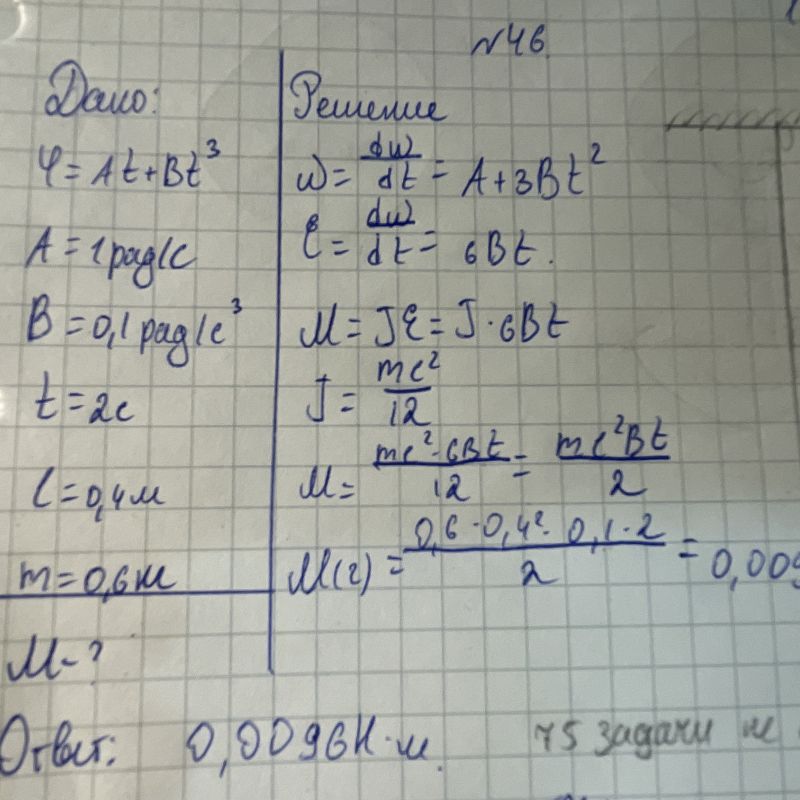 №46.
Дано:
φ = At + Bt³
A = 1 рад/с
B = 0,1 рад/с³
t = 2с
l = 0,4м
m = 0,6м
M - ?
Решение
ω = dω/dt = A + 3Bt²
ε = dω/dt = 6Bt.
M = Jε = J · 6Bt
J = ml²/12
M = ml² · 6Bt/12 = ml²Bt/2
M(2) = 0,6 · 0,4² · 0,1 · 2/2 = 0,009
Ответ: 0,0096Н·м.
75 задачи